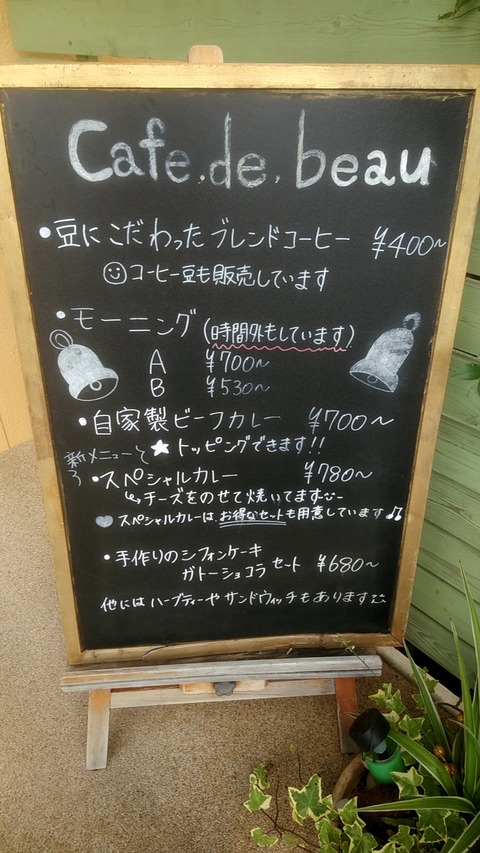 Cafe.de.beau
•豆にこだわったブレンドコーヒー ¥400~
コーヒー豆も販売しています
•モーニング(時間外もしています)
A ¥700~
B ¥530~
•自家製ビーフカレー ¥700~
★トッピングできます!!
新メニュー
•スペシャルカレー ¥780~
↳チーズをのせて焼いてます
スペシャルカレーは、お得なセットも用意しています♫
•手作りのシフォンケーキ
ガトーショコラ セット ¥680~
他にはハーブティーやサンドウィッチもあります